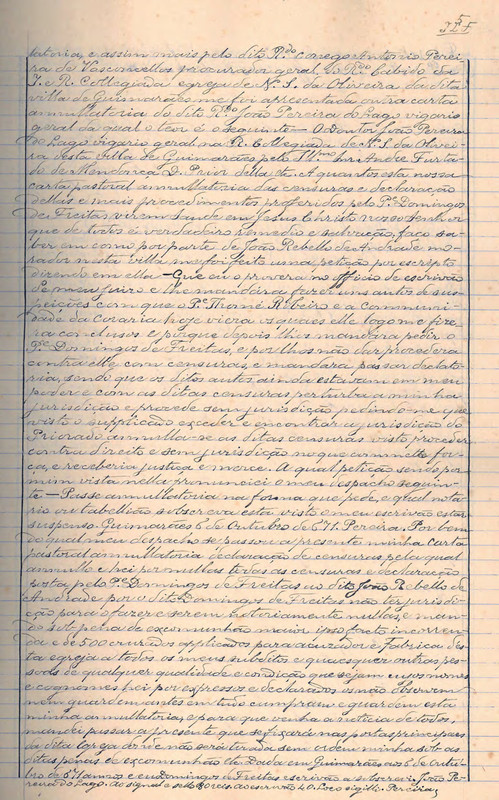 latoria, e assim mais pelo dito R.do conego Antonio Perei-
ra de Vasconcellos procurador geral do R.do Cabido da
I. e R. Collegiada egreja de N.ª S. da Oliveira da dita
villa de Guimarães me foi apresentada uma carta
annullatoria do dito João Pereira do Lago vigario
geral da qual o teor é o seguinte — O Doutor João Pereira
do Lago vigario geral na R. Collegiada de N.ª S. da Olivei-
ra desta villa de Guimarães pelo Ill.mo Snr. André Furta-
do de Mendonça D. Prior della etc. A quantos esta nossa
carta pastoral annullatoria das censuras e declaração
dellas e mais procedimentos proferidos pelo P.e Domingos
de Freitas virem saude em Jesus Christo nosso Senhor
que de todos é verdadeiro remedio e salvação, faço sa-
ber em como por parte de João Rebello de Andrade mo-
rador nesta villa me foi feito uma petição por escripto
dizendo em ella — Que eu o provera no officio de escrivão
de meu juizo e lhe mandára fazer uns autos de sus-
peições com que o P.e Thomé Ribeiro e a Communi-
dade da Coraria hoje viera os quaes elle logo me fize-
ra conclusos e porque depois lhis mandara pedir o
P.e Domingos de Freitas, e por lhos não dar procedera
contra elle com censuras, e mandara passar declato-
ria, sendo que os ditos autos ainda estavam em meu
poder e com as ditas censuras perturba a minha
jurisdicção e procede sem jurisdicção pedindo-me que
visto o supplicado exceder e encontrar a jurisdicção do
Priorado annulla-se as ditas censuras visto proceder
contra direito e sem jurisdicção no que annulle for-
ça, e receberia justiça e merce. A qual petição sendo por
mim vista nella pronunciei o meu despacho seguin-
te — Passe annullatoria na forma que pede, e qual nota-
rio ou tabellião subscreva esta visto o meu escrivão estar
suspenso. Guimarães 6 de Outubro de 671. Pereira. Por bem
do qual meu despacho se passou a presente minha carta
pastoral annullatoria declaração de censuras pela qual
annulle e hei por nullas todas as censuras e declaração
posta pelo P.e Domingos de Freitas ao dito João Rebello de
Andrade por o dito Domingos de Freitas não ter jurisdi-
cção para o fazer e serem notoriamente nullas, e man-
do sob pena de excommunhão maior ipso facto incorren-
da e de 500 cruzados applicados para accusador e fabrica des-
ta egreja a todos os meus subditos e quaesquer outras pes-
soas de qualquer qualidade e condição que sejam cujos nomes
e cognomes hei por expressos e declarados os não observem
nem guardem antes em tudo cumpram e guardem esta
minha annullatoria, e para que venha á noticia de todos,
mandei passar a presente que se fixará nas portas principaes
da dita egreja donde não será tirada sem ordem minha sob as
ditas penas de excommunhão etc. Dada em Guimarães aos 6 de Outu-
bro de 671 annos e eu Domingos de Freitas escrivão a subscrevi. João Pe-
reira do Lago. ao signal e sello 6 reis. ao escrivão 40. Loco sigilli. Pereira,